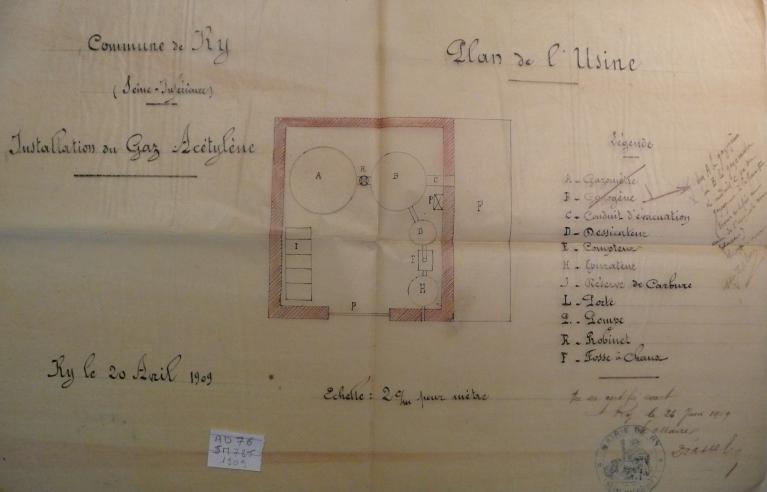 Commune de Ry
(Seine-Inférieure)
Installation du Gaz Acétylène
Plan de l'Usine
Légende
A - Gazomètre
B - Gazogène
C - Conduit d'évacuation
D - Dessicateur
E - Compteur
H - Epurateur
I - Réserve de Carbure
L - Porte
P. - Pompe
R - Robinet
F - Fosse à Chaux
A
R
B
C
P
F
D
I
H
P
Ry le 20 Avril 1909
Echelle: 2 c/m pour mètre
Ry le 26 Juin 1909
AD 76
1909